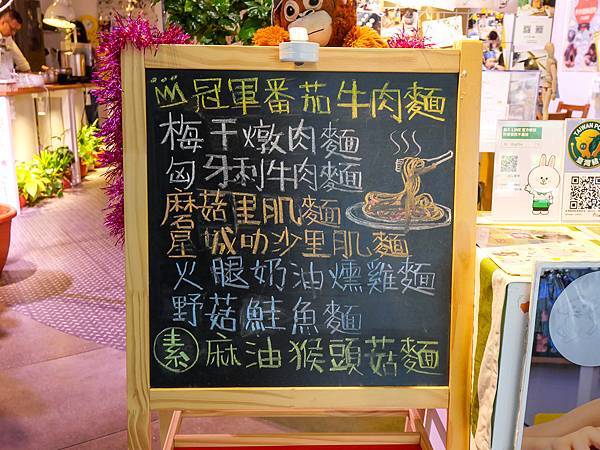 冠軍番茄牛肉麵
梅干燉肉麵
匈牙利牛肉麵
麻菇里肌麵
星城叻沙里肌麵
火腿奶油燻雞麵
野菇鮭魚麵
素 麻油猴頭菇麵
TAIWAN